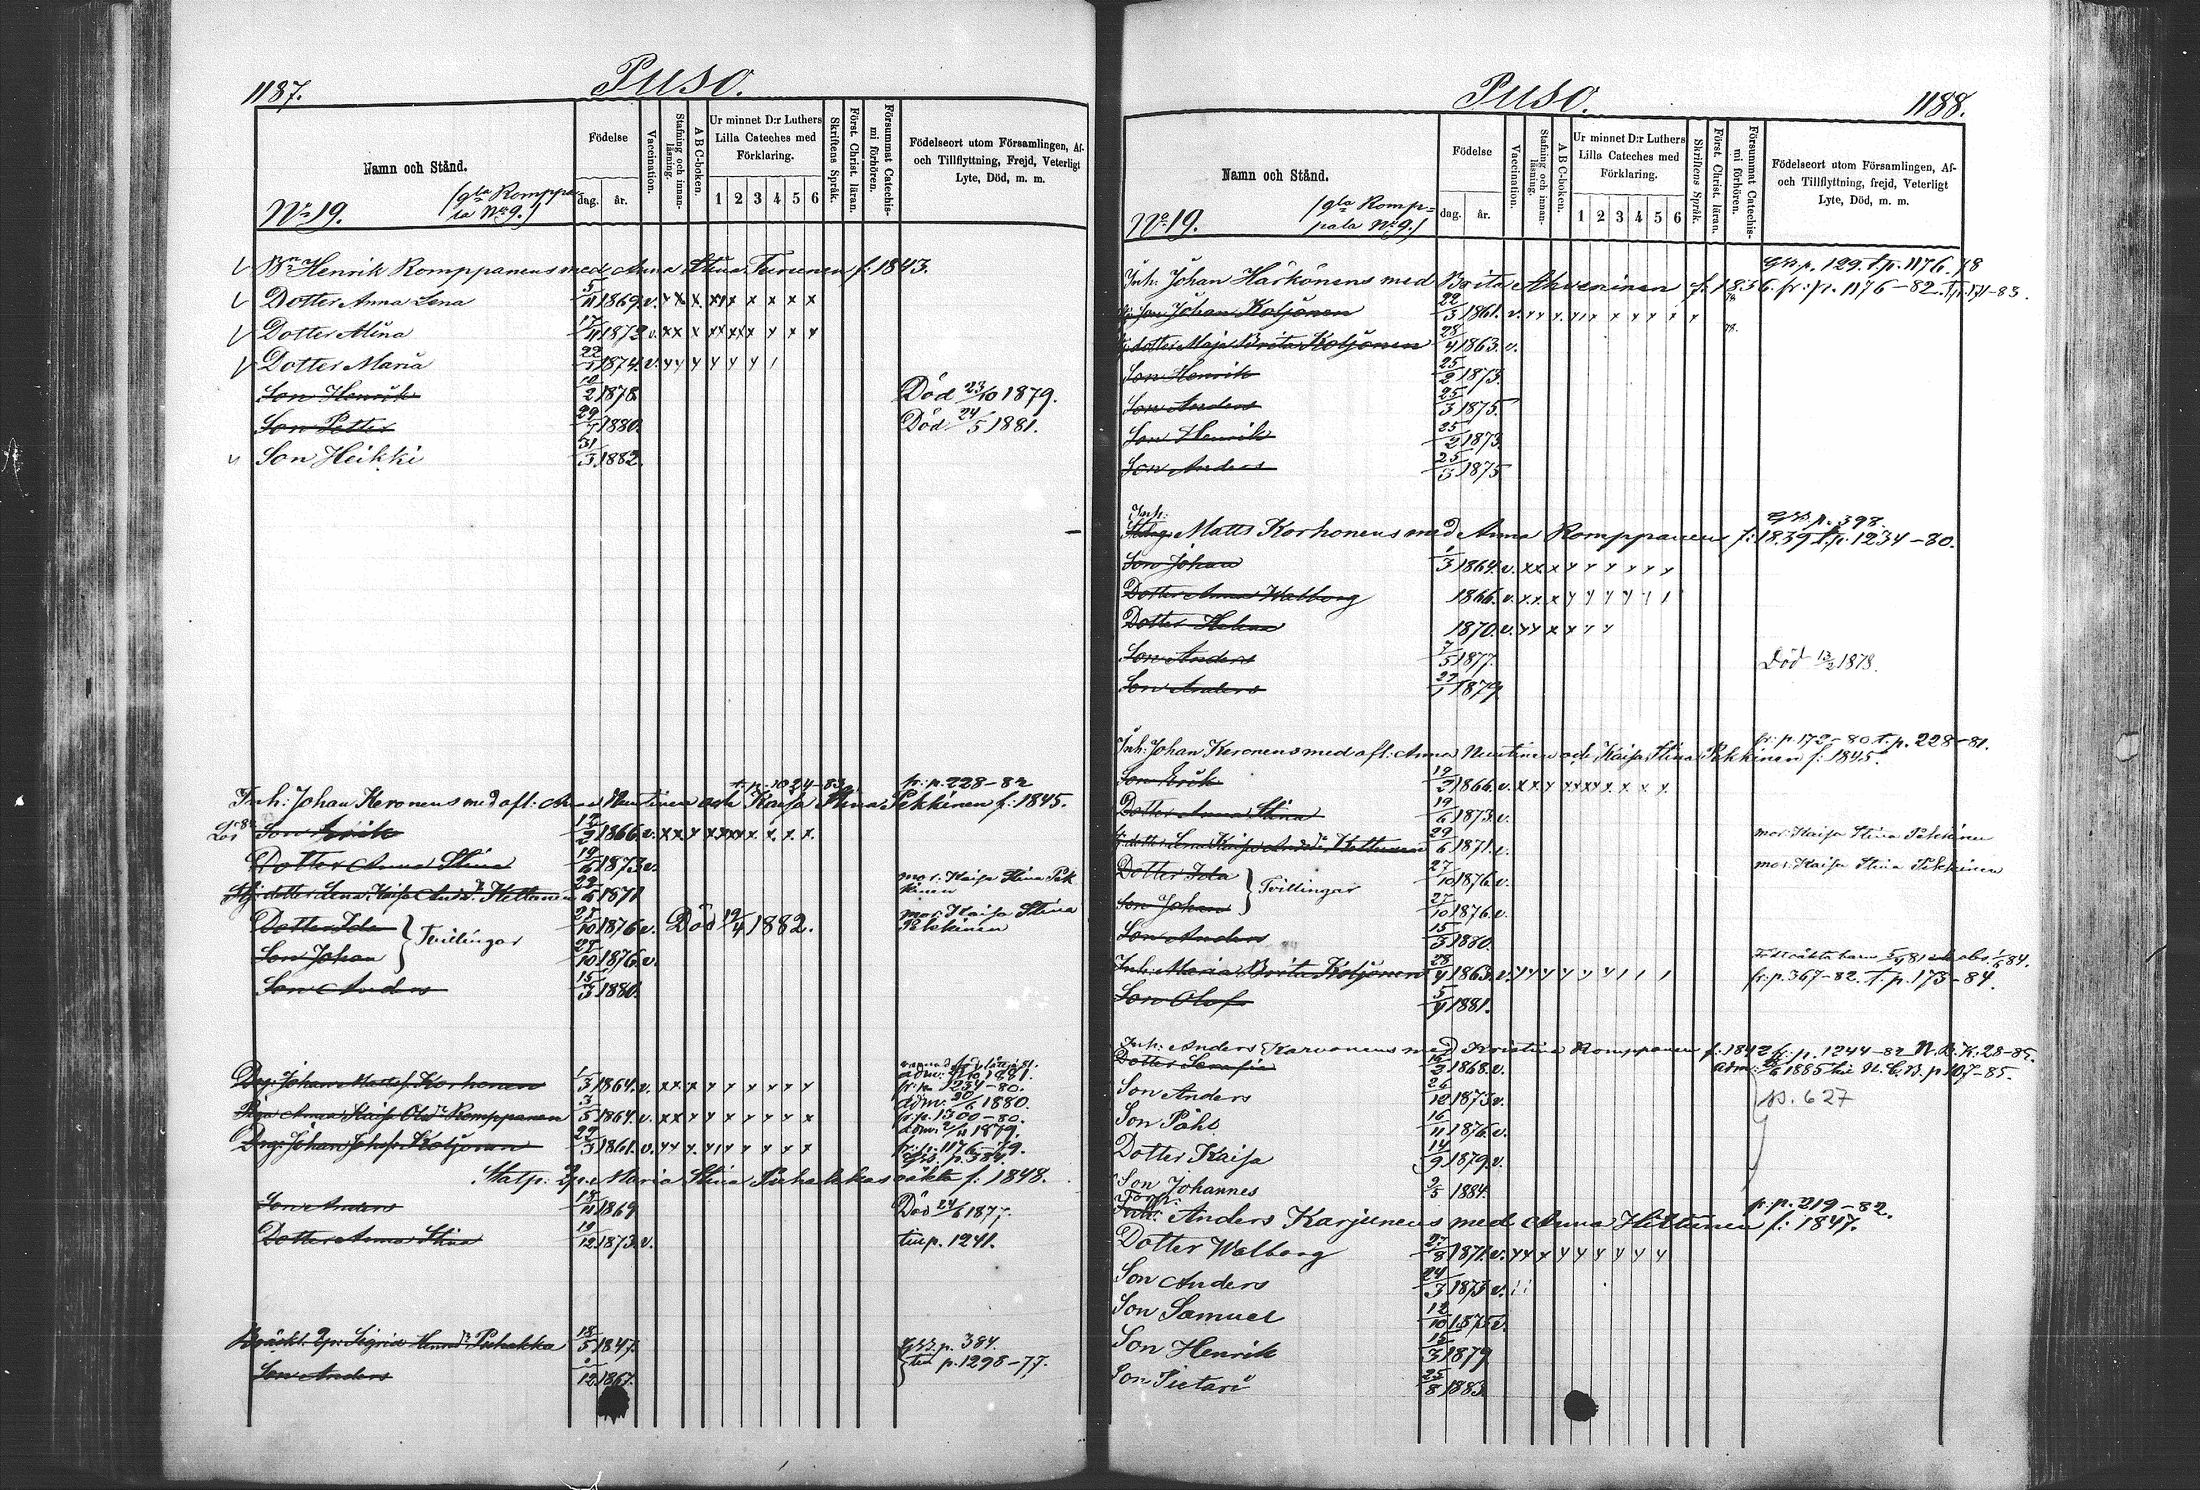 1187.
Puso.
Namn och Stånd.
Födelse
dag.
år.
Vaccination.
Stafning och innan-läsning.
ABC-boken.
Ur minnet D:r Luthers Lilla Cateches med Förklaring.
1 2 3 4 5 6
Skriftens Språk.
Först. Christ. läran.
Försummat Catechis-mi förhören.
Födelseort utom Församlingen, Af- och Tillflyttning, Frejd, Veterligt Lyte, Död, m. m.
No 19. (gla Romppa-la No 9.)
Henrik Romppanens med Anna Stina Turunen f: 1843.
Dotter Anna Lena 5/11 1869. v. x x x x x x x x x
Dotter Alina 17/11 1872 v. x x x x x x x x x
Dotter Maria 22/1 1874. v. y y y y y y 1
Son Henrik 10/2 1878. Död 23/10 1879.
Son Petter 29/7 1880. Död 24/5 1881.
Son Heikki 31/3 1882.
t. p. 1024-83 fr: p. 228-82
Inh: Johan Keronens med afl: Anna Nuutinen och Kaisa Stina Pekkinen f: 1845.
Son Erik 12/2 1866. v. x x x x x x x x x
Dotter Anna Stina 19/6 1873 v.
dotter Lena Kaisa And:dr Kettunen 29/6 1871 mor. Kaisa Stina Pek kinen
Dotter Ida 27/10 1876 v. Död 19/4 1882. mor Kaisa Stina Pekkinen
} Tvillingar
Son Johan 27/10 1876. v.
Son Anders 15/3 1880.
Drg: Johan Matts: Korhonen 1/3 1864. v. x x x y y y y y y fr: p. 1234-80.
Pga Anna Kaisa Olsdr Romppanen 3/5 1864. v. x x x y y x x x x adm. 20/6 1880. fr: p. 1300-80.
Drg: Johan Johs: Kotjonen 22/3 1861. v. y y y y 1 y y y y adm. 2/11 1879. fr: p. 1176-79.
Grs. p. 384.
Statp: Qp: Maria Stina Puhakkas oäkta f: 1848.
Son Anders 18/11 1869 Död 24/6 1877.
Dotter Anna Stina 19/12 1873. v. till p. 1241.
Qp: Sigrid Henrdr Puhakka 18/5 1847. Grs. p. 384.
Son Anders /12 1867. till p. 1298-77.
Puso.
1188.
Namn och Stånd.
Födelse
dag.
år.
Vaccination.
Stafning och innan-läsning.
ABC-boken.
Ur minnet D:r Luthers Lilla Cateches med Förklaring.
1 2 3 4 5 6
Skriftens Språk.
Först. Christ. läran.
Försummat Catechis-mi förhören.
Födelseort utom Församlingen, Af- och Tillflyttning, frejd, Veterligt Lyte, Död, m. m.
No 19. (gla Romp-pala No 9.)
Grs p. 129. t. p. 1176. 78
Inh: Johan Härkönens med Brita Ahveninen f: 1836. fr: p. 1176-82.
Son Johan Kotjonen 22/3 1861. v. y y y y 1 x x y y x x
dotter Maja Brita Kotjonen 28/4 1863. v. 78.
Son Henrik 25/2 1873.
Son Anders 25/3 1875.
Son Henrik 25/2 1873
Son Anders 25/3 1875
Inh:
Matts Korhonens med Anna Romppanen f: 1839 t. p. 1234-80.
Grs. p. 398.
Son Johan 1/3 1864. v. x x x y y y y y y
Dotter Anna Walborg 1866. v. y y x y y y y 1 1
Dotter Helena 1870. v. y y x x y y
Son Anders 7/5 1877. Död 13/2 1878.
Son Anders 27/1 1879
fr: p. 172-80 t. p. 228-81.
Inh: Johan Keronens med afl: Anna Nuutinen och Kaisa Stina Pekkinen f: 1845.
Son Erik 12/2 1866. v. x x y x x x x x x
Dotter Anna Stina 19/6 1873 v.
dotter Lena Kaisa And:dr Kettunen 29/6 1871. v. mor: Kaisa Stina Pekkinen
Dotter Ida 27/10 1876. v. mor. Kaisa Stina Pekkinen
} Tvillingar
Son Johan 27/10 1876. v.
Son Anders 15/3 1880.
Inh: Maria Brita Kotjonen 28/4 1863. v. y y y y y y 1 1 1 Född oäkta barn 5/4 81 abs. 1/6 84. fr: p. 367-82. t. p. 173-84.
Son Olof 5/4 1881.
Inh: Anders Karvonens med Kristina Romppanen f: 1842 fr: p. 1244-82 N. B. K. 28-85.
Dotter Sanfia 12/2 1868. v. adm: 1885 till N. C. B. p 107-85.
Son Anders 26/12 1873 v. N. 627
Son Påhs 16/11 1876. v.
Dotter Kaisa 14/9 1879. v.
Son Johannes 9/5 1884.
Torp: fr: p. 219-82.
Anders Karjunens med Anna Hiltunen f: 1847.
Dotter Walborg 27/8 1871. v. y y y y y y y y y
Son Anders 24/3 1873 v. 1 1
Son Samuel 12/10 1875 v.
Son Henrik 15/3 1879
Son Pietari 25/8 1883